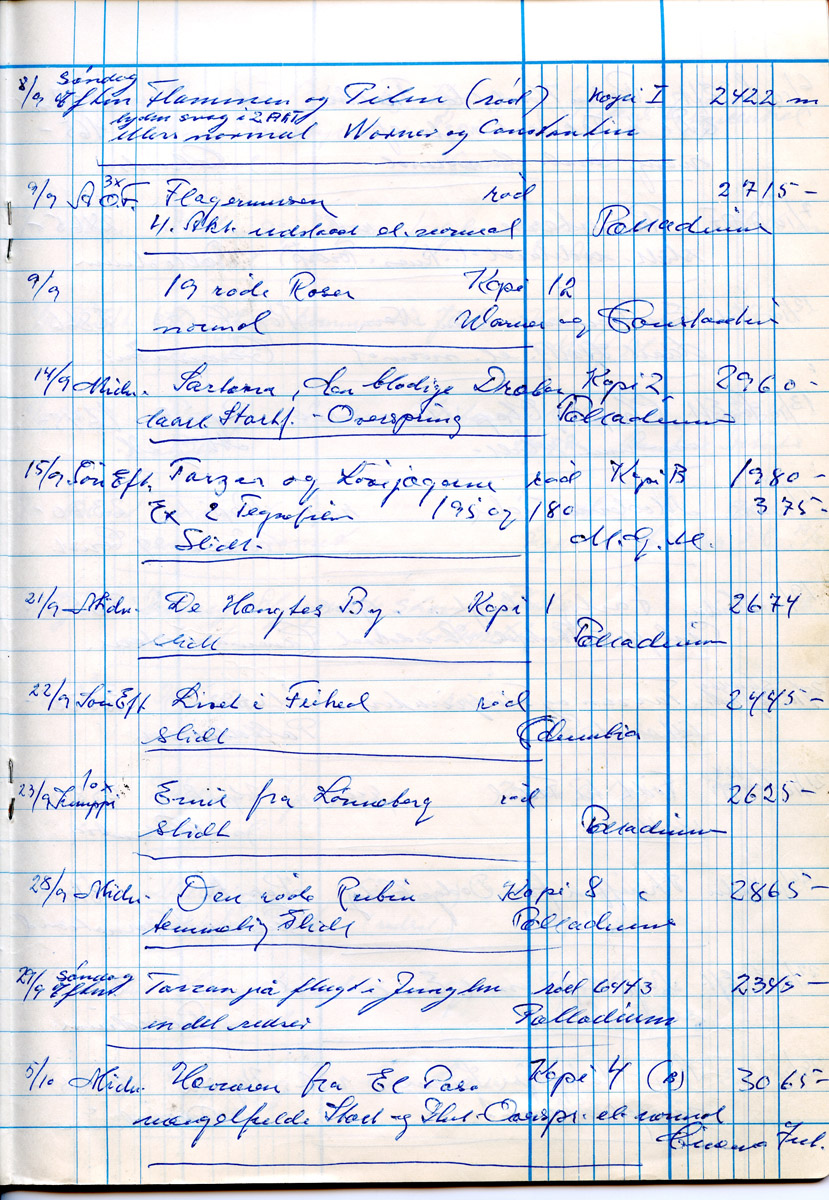 8/9 Søndag Eftm Flammen og Pilen (rød) Kopi I 2422 m
lyden svag i 2 AKT
ellers normal Warner og Constantin
9/9 3x A.O.F. Flagermusen rød 2715-
4. Akt. udstaat el. normal Palladium
9/9 19 røde Roser Kopi 12
normal Warner og Constantin
14/9 Midn. Sartana, den blodige Kopi 2 2960-
Start. - Overspring Palladium
15/9 Søn Eft Tarzan og Løvejægerne rød Kopi B 1980-
Ex 2 Tegnefilm 195 og 180 375-
Slidt. M.G.M.
21/9 Midn. De Hængtes By. Kopi 1 2674
slidt Palladium
22/9 Søn Eft Livet i Frihed rød 2445-
slidt Columbia
23/9 10x Emil fra Lönneberg rød 2625-
slidt Palladium
28/9 Midn. Den røde Rubin Kopi 8 2865-
temmelig slidt Palladium
29/9 Søndag Eftm. Tarzan på flugt i Junglen rød 6443 2345-
en del ridser Palladium
5/10 Midn. Herren fra El Paso Kopi 4 (B) 3065-
mangelfulde Start og Slut-Overspr. el. normal